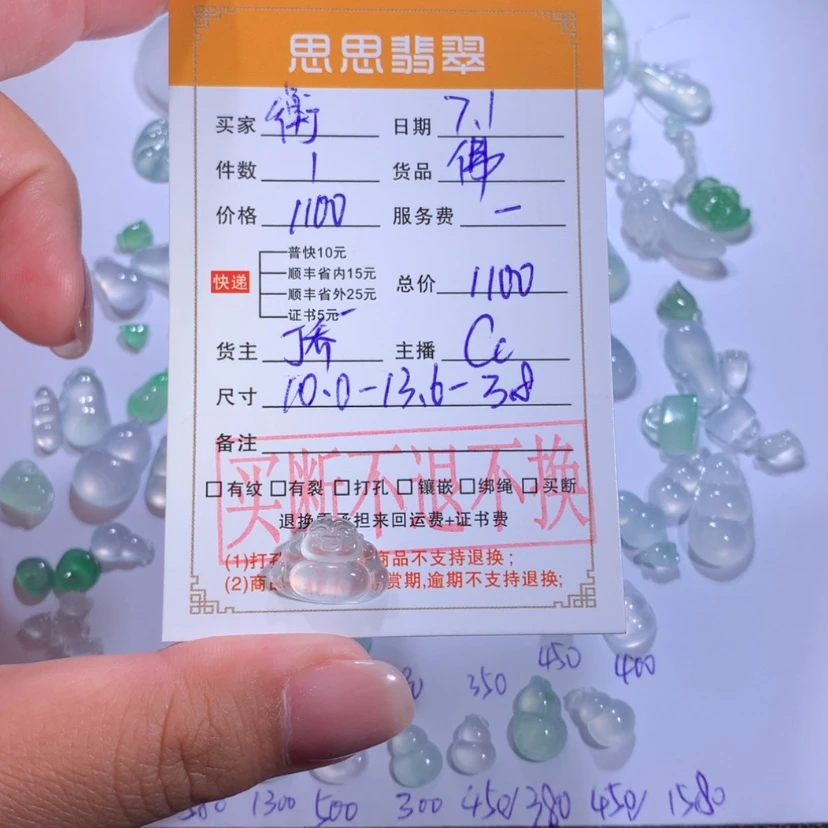 思思翡翠
买家 衡 日期 7.1
件数 1 货品 佛
价格 1100 服务费 一
快递
普快10元
顺丰省内15元
顺丰省外25元
证书5元
总价 1100
货主 乔 主播 Cc
尺寸 10.0-13.6-3.8
备注
买断不退不换
□有纹 □有裂 □打孔 □镶嵌 □绑绳 □买断
退换 承担来回运费+证书费
(1)打孔 商品不支持退换;
(2)商 赏期,逾期不支持退换;
450 400
350
1300 500 300 450/ 380 450/ 1580